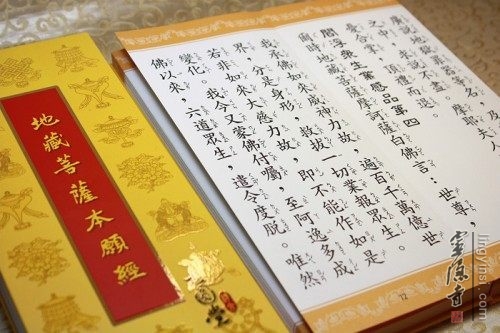 之中，求說不盡。摩耶夫人
愁憂合掌，頂禮而退。
閻浮眾生業感品第四
爾時地藏菩薩摩訶薩白佛言：世尊，
我承佛如來威神力故，遍百千萬億世
界，分是身形，救拔一切業報眾生。
若非如來大慈力故，即不能作如是
變化。我今又蒙佛付囑，至阿逸多成
佛以來，六道眾生，遣令度脫。唯然
12
地藏菩薩本願經
靈隱寺